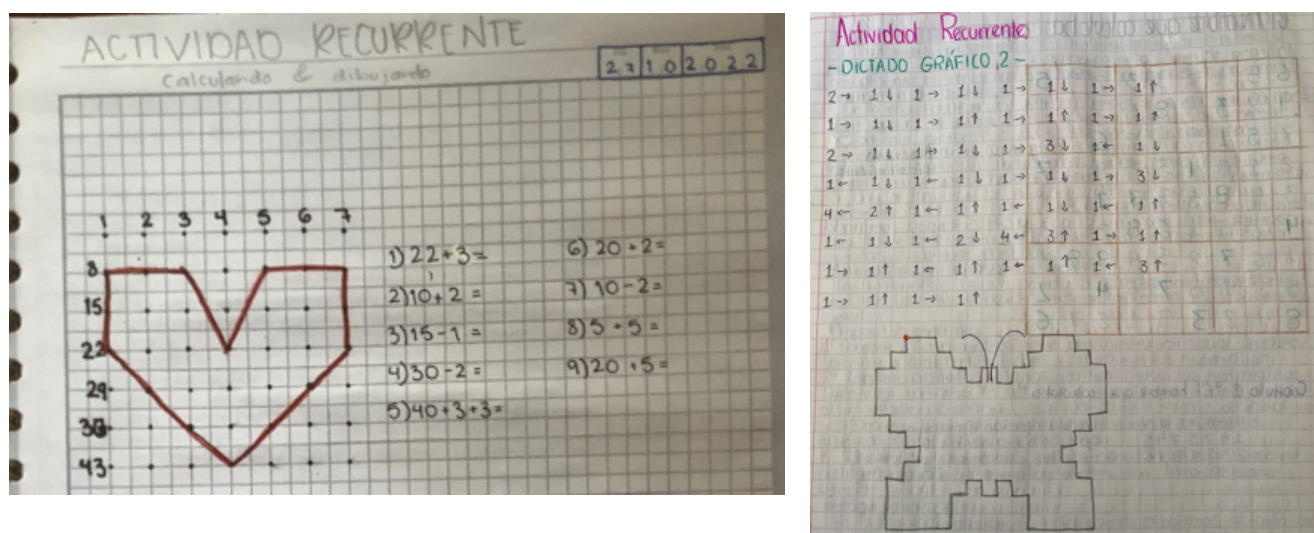 ACTIVIDAD RECURRENTE
Calculando & dibujando
27 10 2022
1 2 3 4 5 6 7
8
15
22
29
36
43
1) 22+3=
2) 10+2=
3) 15-1=
4) 30-2=
5) 40+3+3=
6) 20+2=
7) 10-2=
8) 5+5=
9) 20+5=
Actividad Recurrente
-DICTADO GRÁFICO 2-
2→ 1↓ 1→ 1↓ 1→ 1↓ 1→ 1↑
1→ 1↓ 1→ 1↑ 1→ 1↑ 1→ 1↑
2→ 1↓ 1→ 1↓ 1→ 3↓ 1← 1↓
1← 1↓ 1← 1↓ 1→ 1↓ 1→ 3↓
4← 2↑ 1← 1↑ 1← 1↓ 1← 1↑
1← 1↓ 1← 2↓ 4← 3↑ 1→ 1↑
1→ 1↑ 1← 1↑ 1← 1↑ 1← 3↑
1→ 1↑ 1→ 1↑